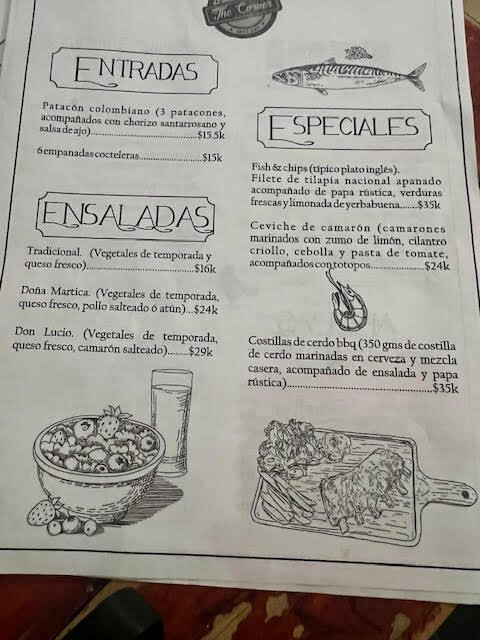 The Corner
ENTRADAS
Patacón colombiano (3 patacones,
acompañados con chorizo santarrosano y
salsa de ajo)..............................$15.5k
6 empanadas cocteleras......................$15k
ENSALADAS
Tradicional. (Vegetales de temporada y
queso fresco)..................................$16k
Doña Martica. (Vegetales de temporada,
queso fresco, pollo salteado ó atún)...$24k
Don Lucio. (Vegetales de temporada,
queso fresco, camarón salteado).......$29k
ESPECIALES
Fish & chips (típico plato inglés).
Filete de tilapia nacional apanado
acompañado de papa rústica, verduras
frescas y limonada de yerbabuena.......$35k
Ceviche de camarón (camarones
marinados con zumo de limón, cilantro
criollo, cebolla y pasta de tomate,
acompañados con totopos..................$24k
Costillas de cerdo bbq (350 gms de costilla
de cerdo marinadas en cerveza y mezcla
casera, acompañado de ensalada y papa
rústica)..........................................$35k